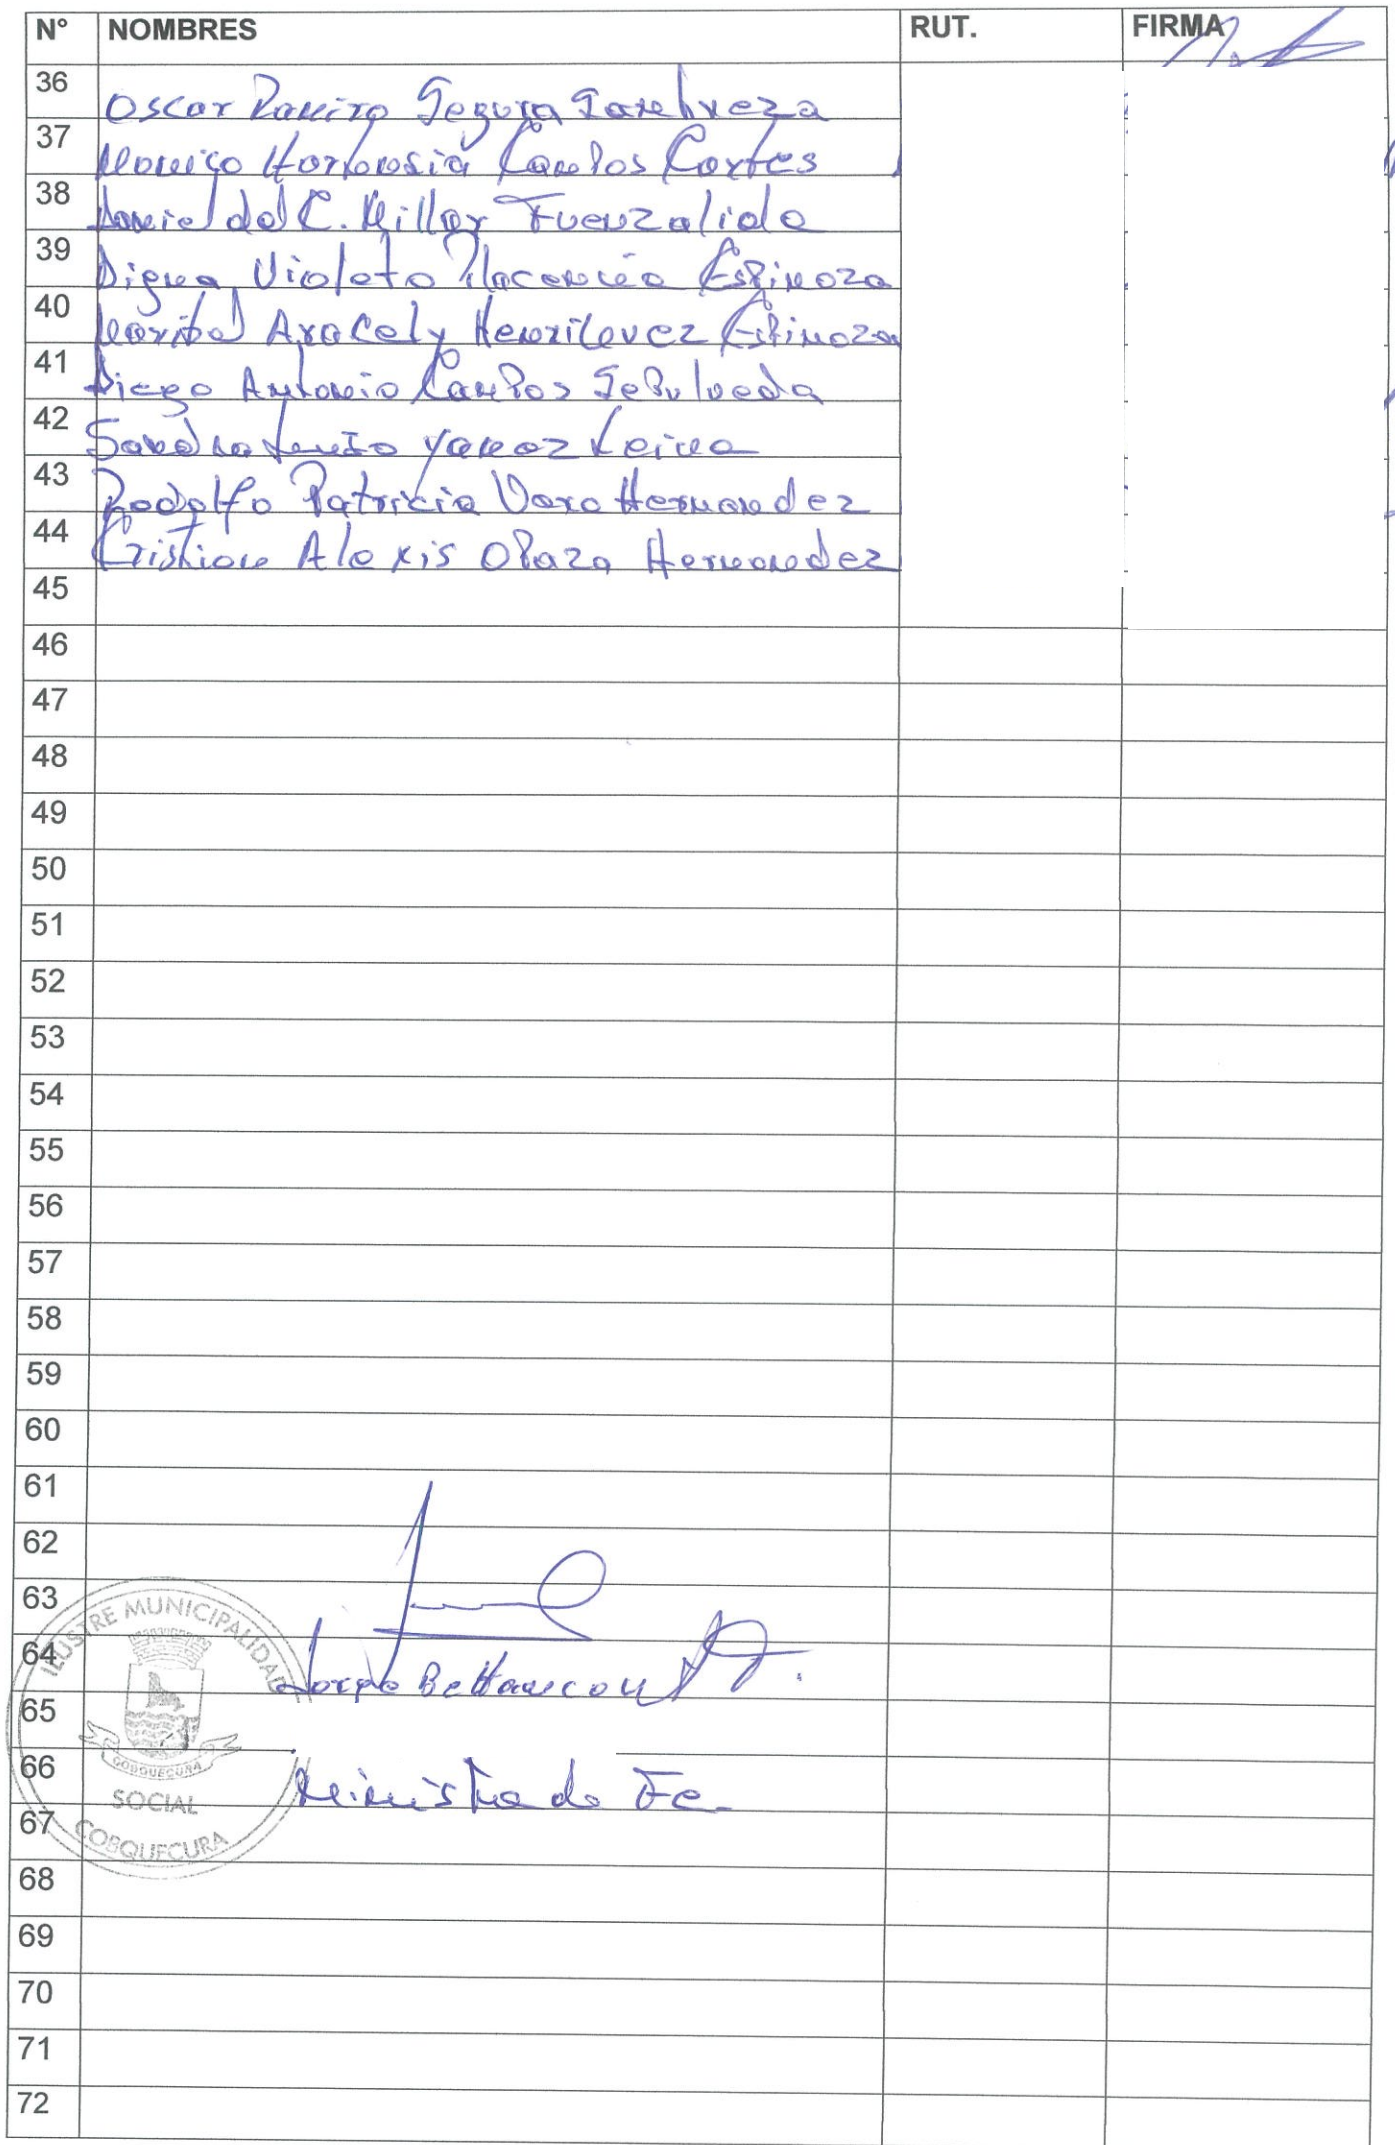 N° NOMBRES RUT. FIRMA
36 Oscar Ramiro Segura
37 Hortensia Campos Cortes
38 del C. Millar Fuenzalida
39 Digna Violeta Placencia Espinoza
40 Maribel Aracely Henriquez Espinoza
41 Diego Antonio Campos Sepulveda
42 Sandra Yanez Leiva
43 Rodolfo Patricio Vera Hernandez
44 Cristian Alexis Opazo Hernandez
45
46
47
48
49
50
51
52
53
54
55
56
57
58
59
60
61
62
63
64
65
66
67
68
69
70
71
72
ILUSTRE MUNICIPALIDAD
COBQUECURA
SOCIAL
COBQUECURA
Jorge Bettancourt
Ministro de Fe